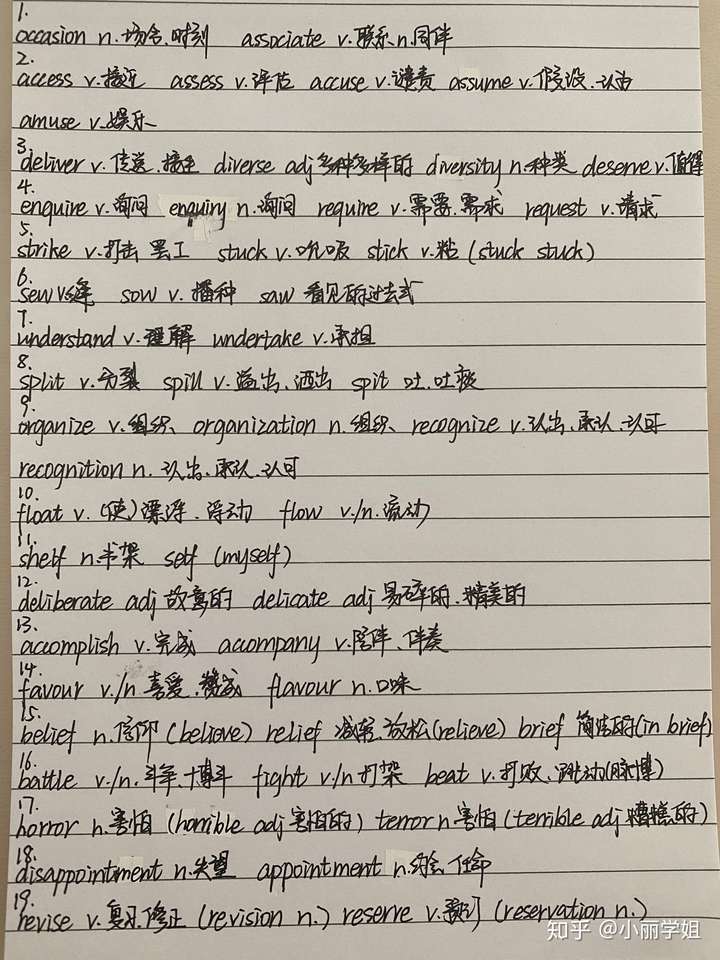 1.
occasion n.场合、时刻 associate v.联系 n.同伴
2.
access v.接近 assess v.评估 accuse v.谴责 assume v.假设、认为
amuse v.娱乐
3.
deliver v.传送、接生 diverse adj 多种多样的 diversity n.种类 deserve v.值得
4.
enquire v.询问 enquiry n.询问 require v.需要、需求 request v.请求
5.
strike v.打击 罢工 stuck v.吮吸 stick v.粘 (stuck stuck)
6.
sew v.缝 sow v.播种 saw 看见的过去式
7.
understand v.理解 undertake v.承担
8.
split v.分裂 spill v.溢出、洒出 spit 吐、吐痰
9.
organize v.组织、organization n.组织、recognize v.认出、承认、认可
recognition n.认出、承认、认可
10.
float v.(使)漂浮、浮动 flow v./n.流动
11.
shelf n.书架 self (myself)
12.
deliberate adj 故意的 delicate adj 易碎的、精美的
13.
accomplish v.完成 accompany v.陪伴、伴奏
14.
favour v./n 喜爱、赞成 flavour n.口味
15.
belief n.信仰 (believe) relief 减轻、放松(relieve) brief 简洁的(in brief)
16.
battle v./n.斗争、搏斗 fight v./n 打架 beat v.打败、跳动(脉搏)
17.
horror n.害怕 (horrible adj 害怕的) terror n 害怕 (terrible adj 糟糕的)
18.
disappointment n.失望 appointment n.约会、任命
19.
revise v.复习、修正 (revision n.) reserve v.预订 (reservation n.)
知乎 @小丽学姐